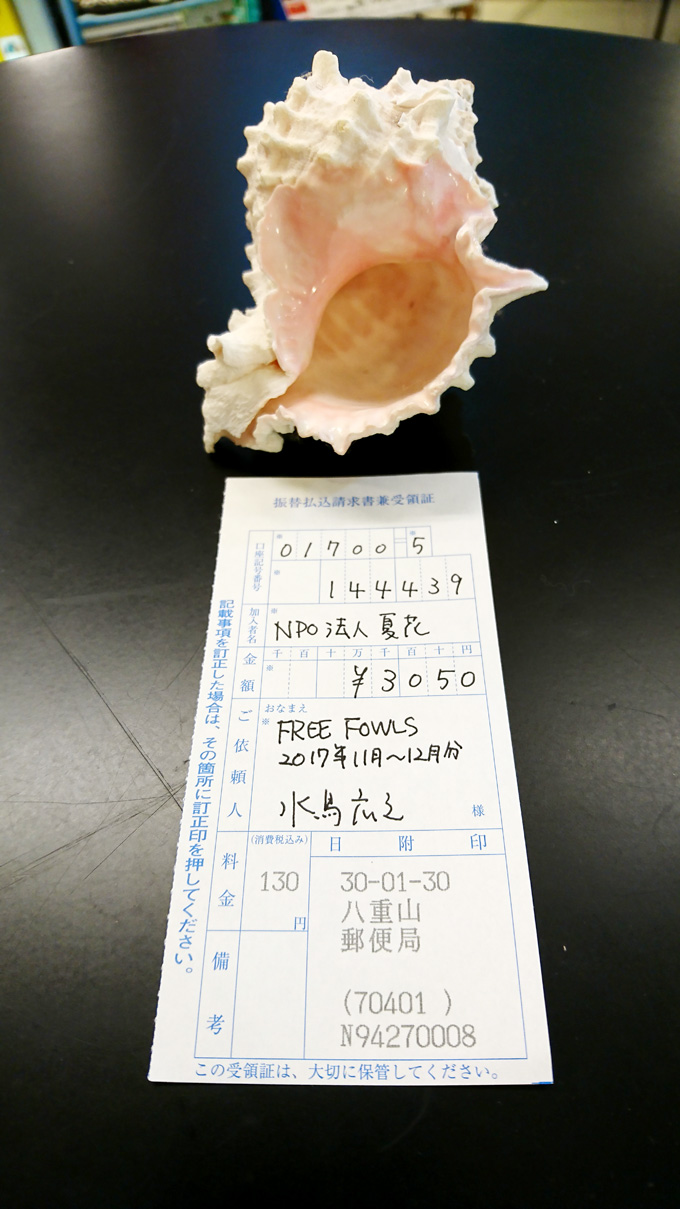 振替払込請求書兼受領証
口座記号番号 ※ 01700 - ※ 5
※ 144439
加入者名 ※ NPO法人夏花
金額 千 百 十 万 千 百 十 円
※ ¥3050
ご依頼人 おなまえ
※ FREE FOWLS
2017年11月~12月分
水鳥広之 様
料金 (消費税込み) 日附印
130円
30-01-30
八重山
郵便局
(70401 )
N94270008
備考
この受領証は、大切に保管してください。
記載事項を訂正した場合は、その箇所に訂正印を押してください。